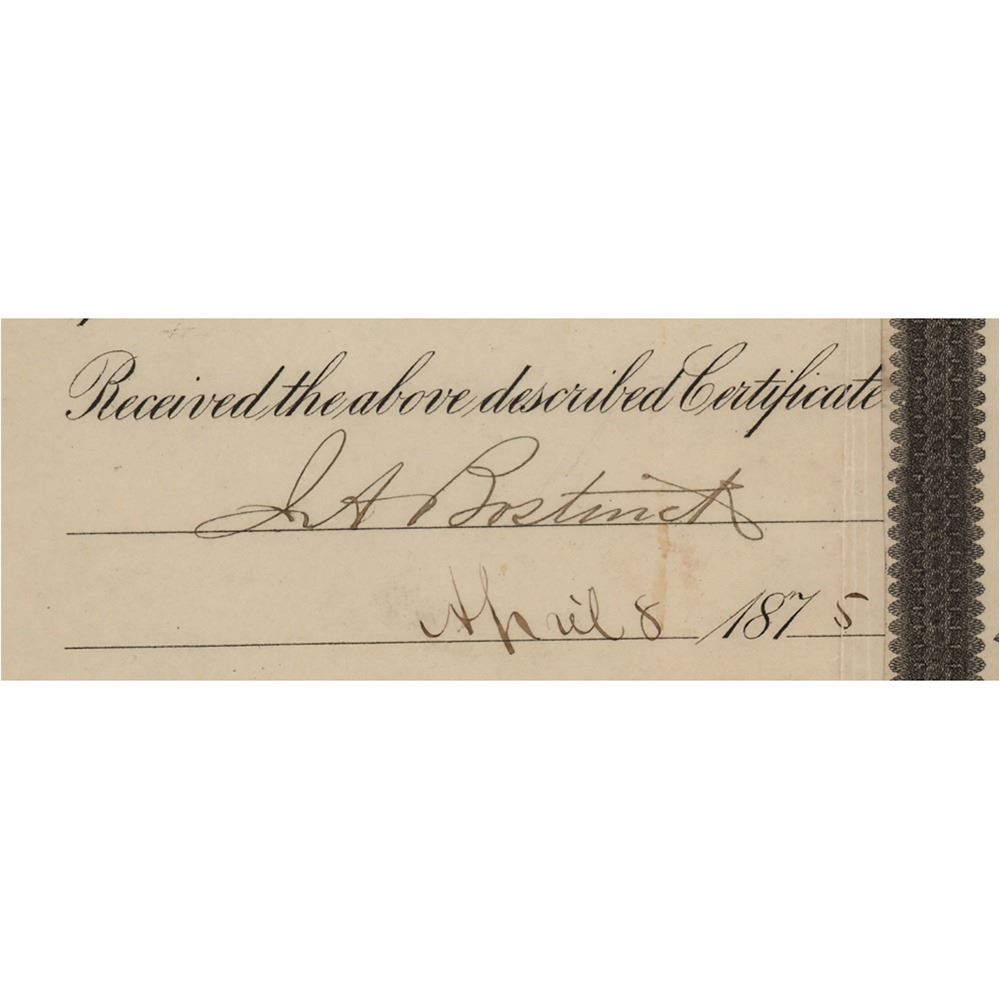 Received the above described Certificate
J A Bostwick
April 8 1875